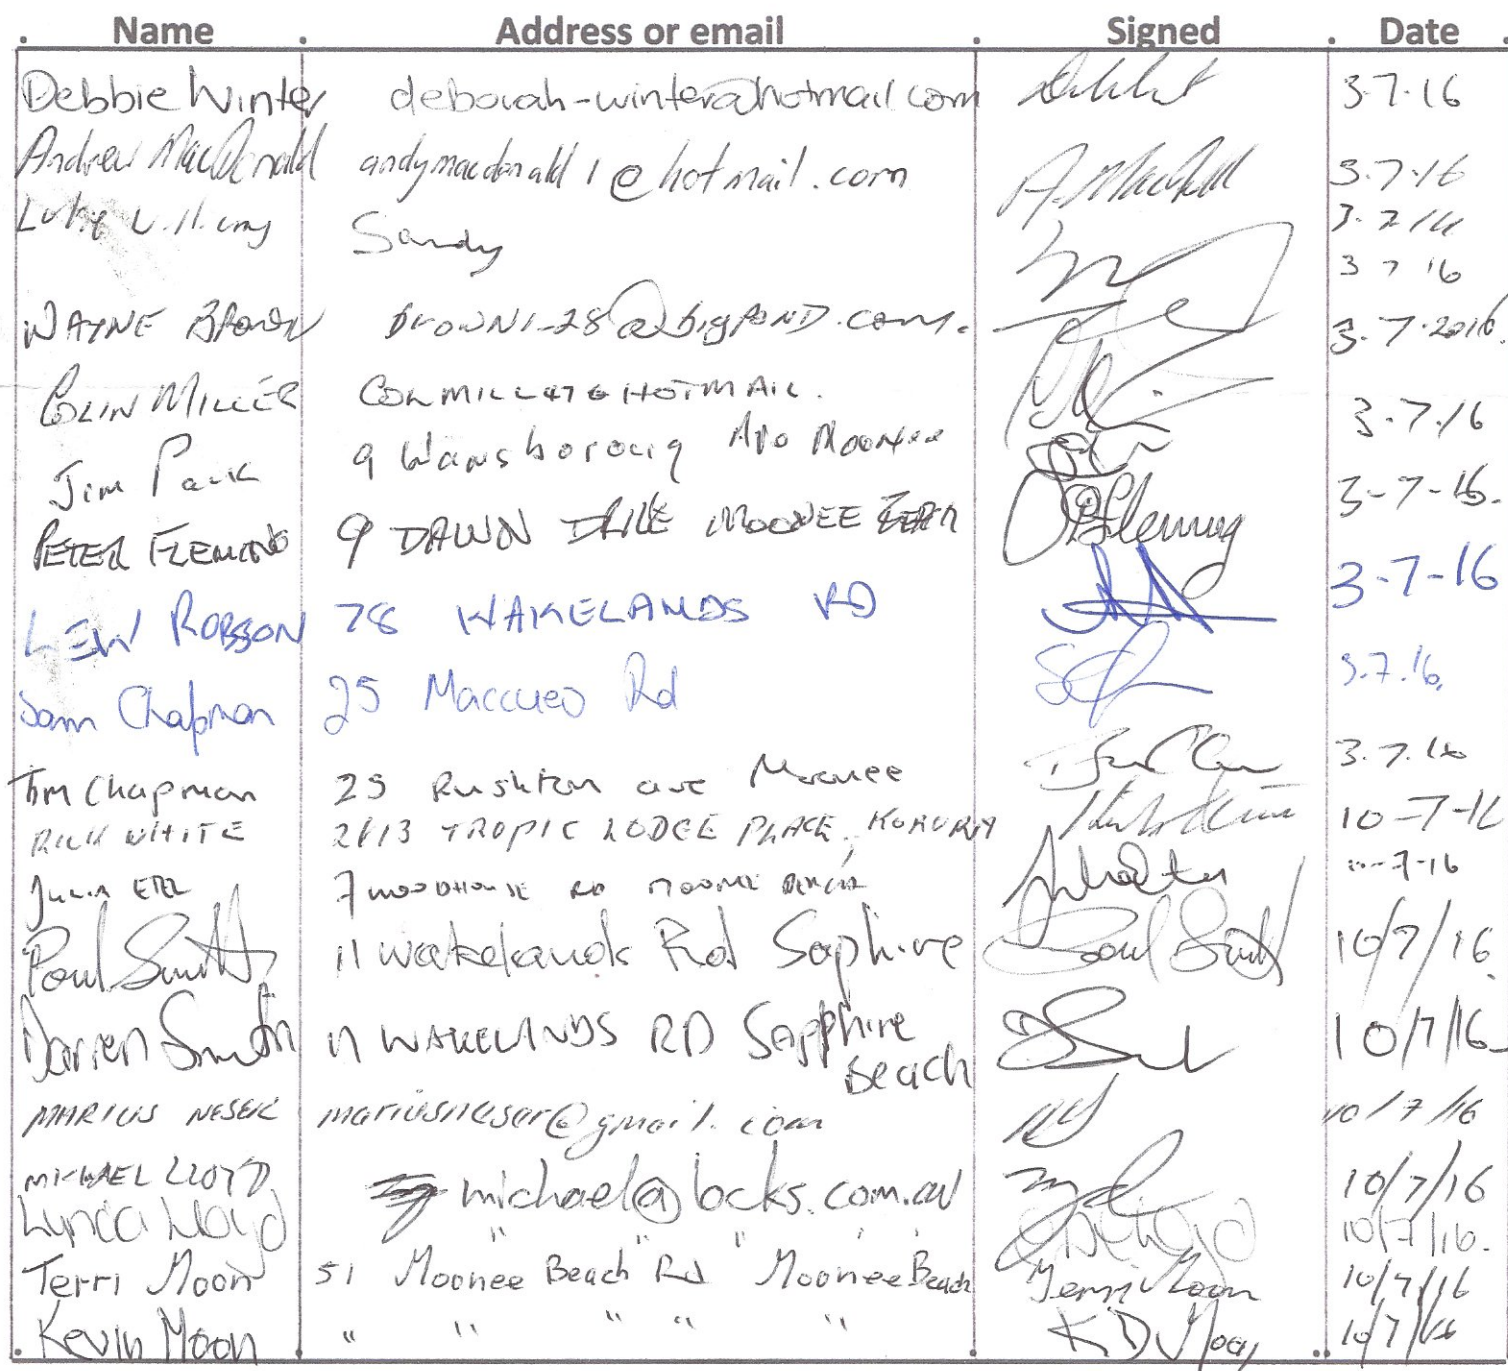 Name Address or email Signed Date
Debbie Winter deborah-winter@hotmail.com 3.7.16
Andrew MacDonald andymacdonald1@hotmail.com A. 3.7.16
Luke Sandy 3.7.16
3 7 16
WAYNE BROWN BROWN1-28@bigPOND.com. 3.7.2016.
COLIN MILLER COLMILL47@HOTMAIL. 3.7.16
Jim 9 Wansboroug Moonee
PETER FLEMING 9 DAWN DRIVE MOONEE BEACH Fleming 3-7-16.
LEW ROBSON 78 WAKELANDS RD 3-7-16
Sam Chapman 25 Maccues Rd 3.7.16.
Tim Chapman 25 Rushton ave Moonee 3.7.16
RICK WHITE 2/13 TROPIC LODGE PLACE, KORORA 10-7-16
JULIA 7 WOODHOUSE RD MOONEE BEACH 7-16
Paul Smith 11 wakelands Rd Saphire Paul Smith 10/7/16
Darren Smith 11 WAKELANDS RD Sapphire Beach 10/7/16
MARIUS NESER mariusneser@gmail.com 10/7/16
MICHAEL LLOYD michael@locks.com.au 10/7/16
Lynda Lloyd " " " 10/7/16.
Terri Moon 51 Moonee Beach Rd Moonee Beach Terri Moon 10/7/16
Kevin Moon " " " " " K D Moon 10/7/16